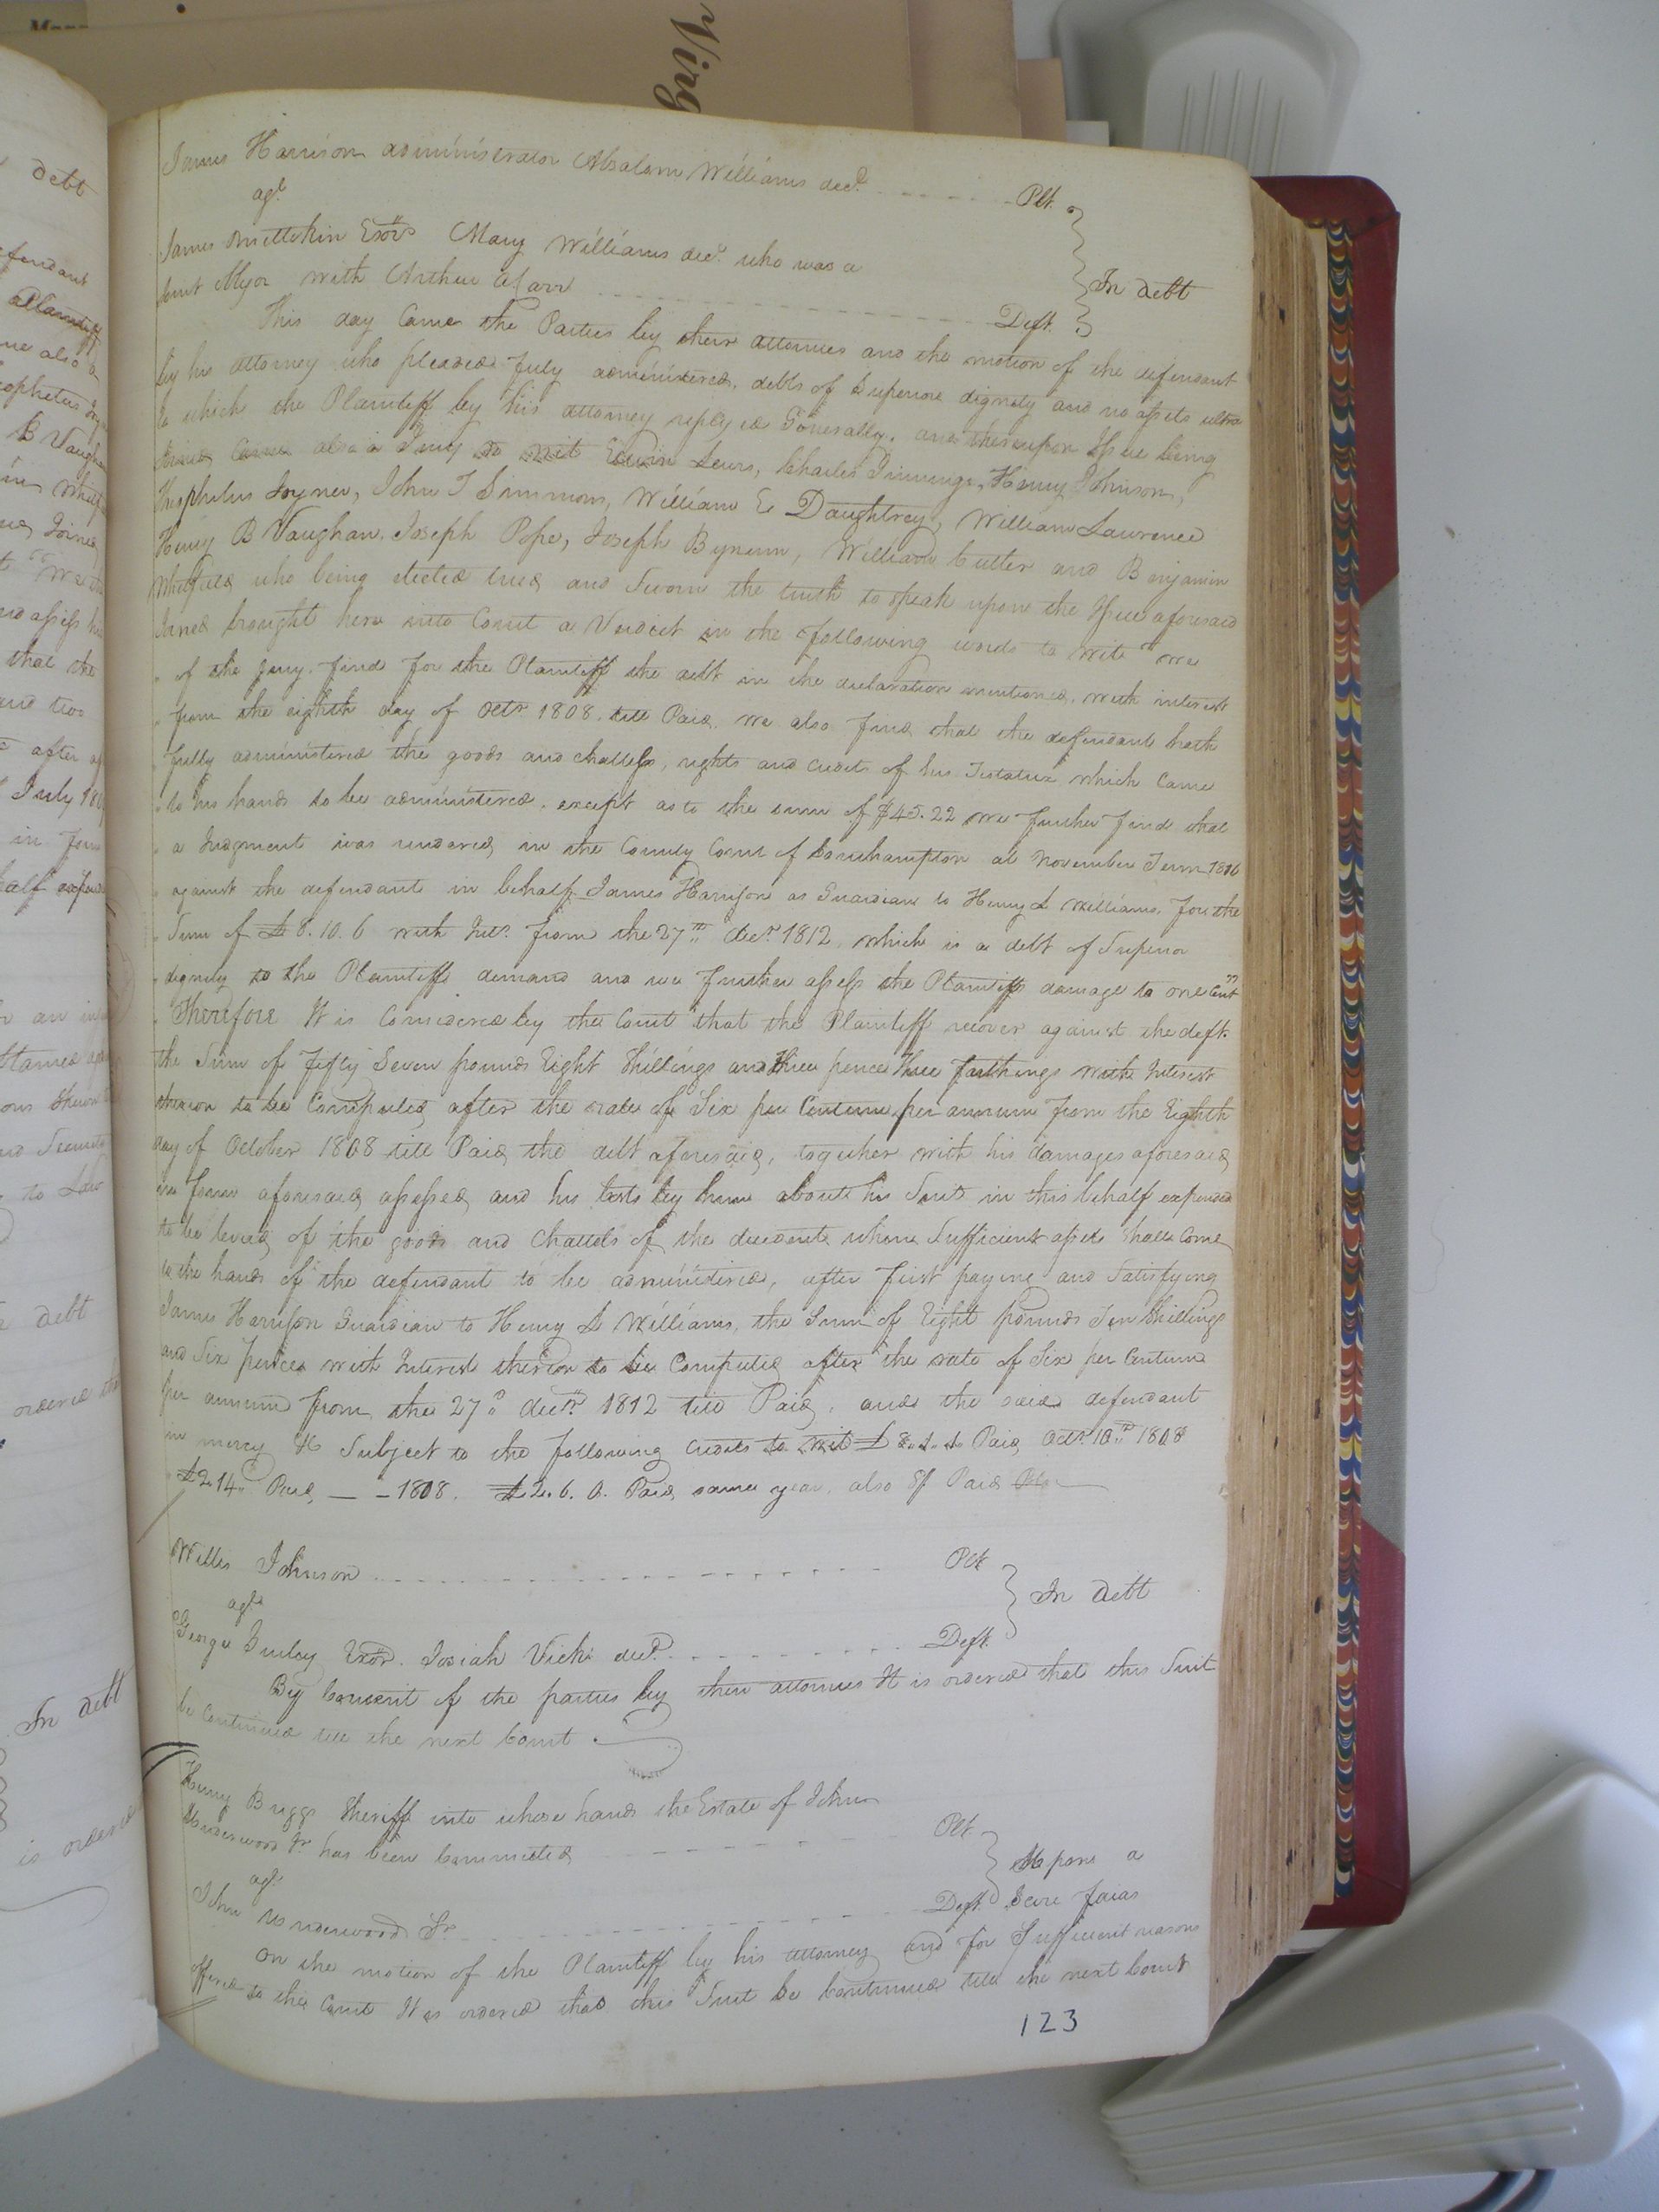 Virg
James Harrison administrator Absalom Williams decd. Plt.
agt.
James Exōr Mary Williams decd. who was a
Joint Obgor with Arthur
In debt
Deft.
This day Came the Parties by their attornies and the motion of the defendant
by his attorney who pleaded fully administered, debts of Superior dignity and no assets ultra
to which the Plaintiff by his attorney replyed Generally, and thereupon Issue being
Joined Came also a Jury to wit Edwin Lewis, Charles Jinnings, Henry Johnson,
Theophelus Joyner, John T Simmons, William E Daughtrey, William Lawrence
Henry B Vaughan, Joseph Pope, Joseph Bynum, William Cutler and Benjamin
Whitfield who being elected tried and Sworn the truth to speak upon the Issue aforesaid
Joined brought here into Court a Verdict in the following words to wit "we
" of the Jury find for the Plaintiff the debt in the declaration mentioned, with interest
" from the eighth day of Octr 1808. till Paid. we also find that the defendant hath
" fully administered the goods and chattels, rights and credits of his Testatrix which Came
" to his hands to be administered, except as to the sum of $45.22 we further find that
" a Judgment was rendered in the County Court of Southampton at November Term 1816
" against the defendant in behalf James Harrison as Guardian to Henry L Williams, for the
" Sum of £8.10.6 with Int. from the 27th decr. 1812, which is a debt of Superior
" dignity to the Plaintiffs demand and we further assess the Plaintiffs damage to one Cent"
Therefore It is Considered by the Court that the Plaintiff recover against the deft.
the Sum of fifty Seven pounds Eight Shillings and three pence three farthings with Interest
thereon to be Computed after the rate of Six per Centum per annum from the Eighth
day of October 1808 till Paid, the debt aforesaid, together with his damages aforesaid
in form aforesaid assessed and his Costs by him about his Suit in this behalf expended
to be levied of the goods and Chattels of the decedent when Sufficient assets shall Come
to the hands of the defendant to be administered, after first paying and Satisfying
James Harrison Guardian to Henry L Williams, the Sum of Eight pounds Ten Shillings
and Six pence with Interest thereon to be Computed after the rate of Six per Centum
per annum from the 27th decr. 1812 till Paid, and the said defendant
in mercy &c Subject to the following Credits to wit Paid Octr. 10th 1808
£2.14 Paid — - 1808. £2.6.0. Paid same year, also Paid
Willis Johnson Plt
agt.
In debt
George Gurley Exōr. Josiah Vick decd. Deft.
By Consent of the parties by their attornies It is ordered that this Suit
be Continued till the next Court.
Henry Briggs Sheriff into whose hands the Estate of John
Underwood Jr has been Committed Plt
agt.
upon a
Scire faias
John Underwood Sr. Deft.
On the motion of the Plaintiff by his attorney and for Sufficient reasons
offered to the Court It is ordered that this Suit be Continued till the next Court
123